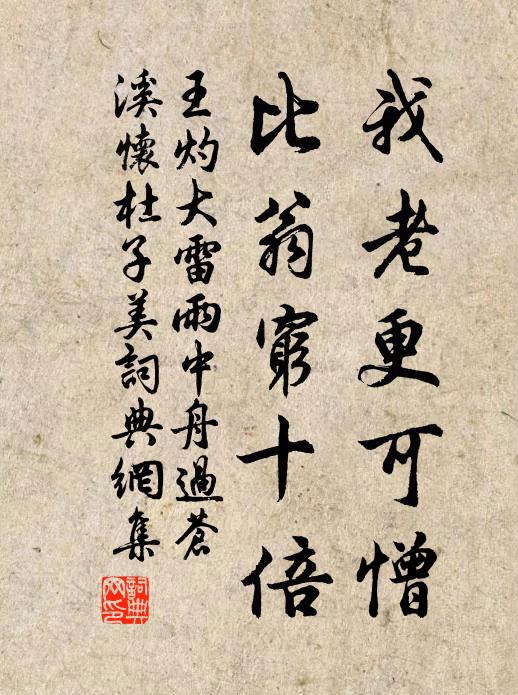 我老更可憎
比翁窮十倍
王灼大雷雨中舟過蒼
溪懷杜子美詞典網集
詞典
网印